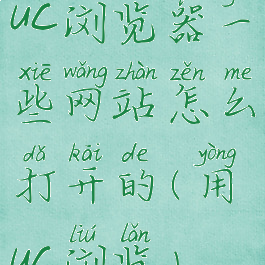 UC浏览器一
xiē wǎng zhàn zěn me
些网站怎么
dǎ kāi de yòng
打开的(用
liú lǎn
UC浏览